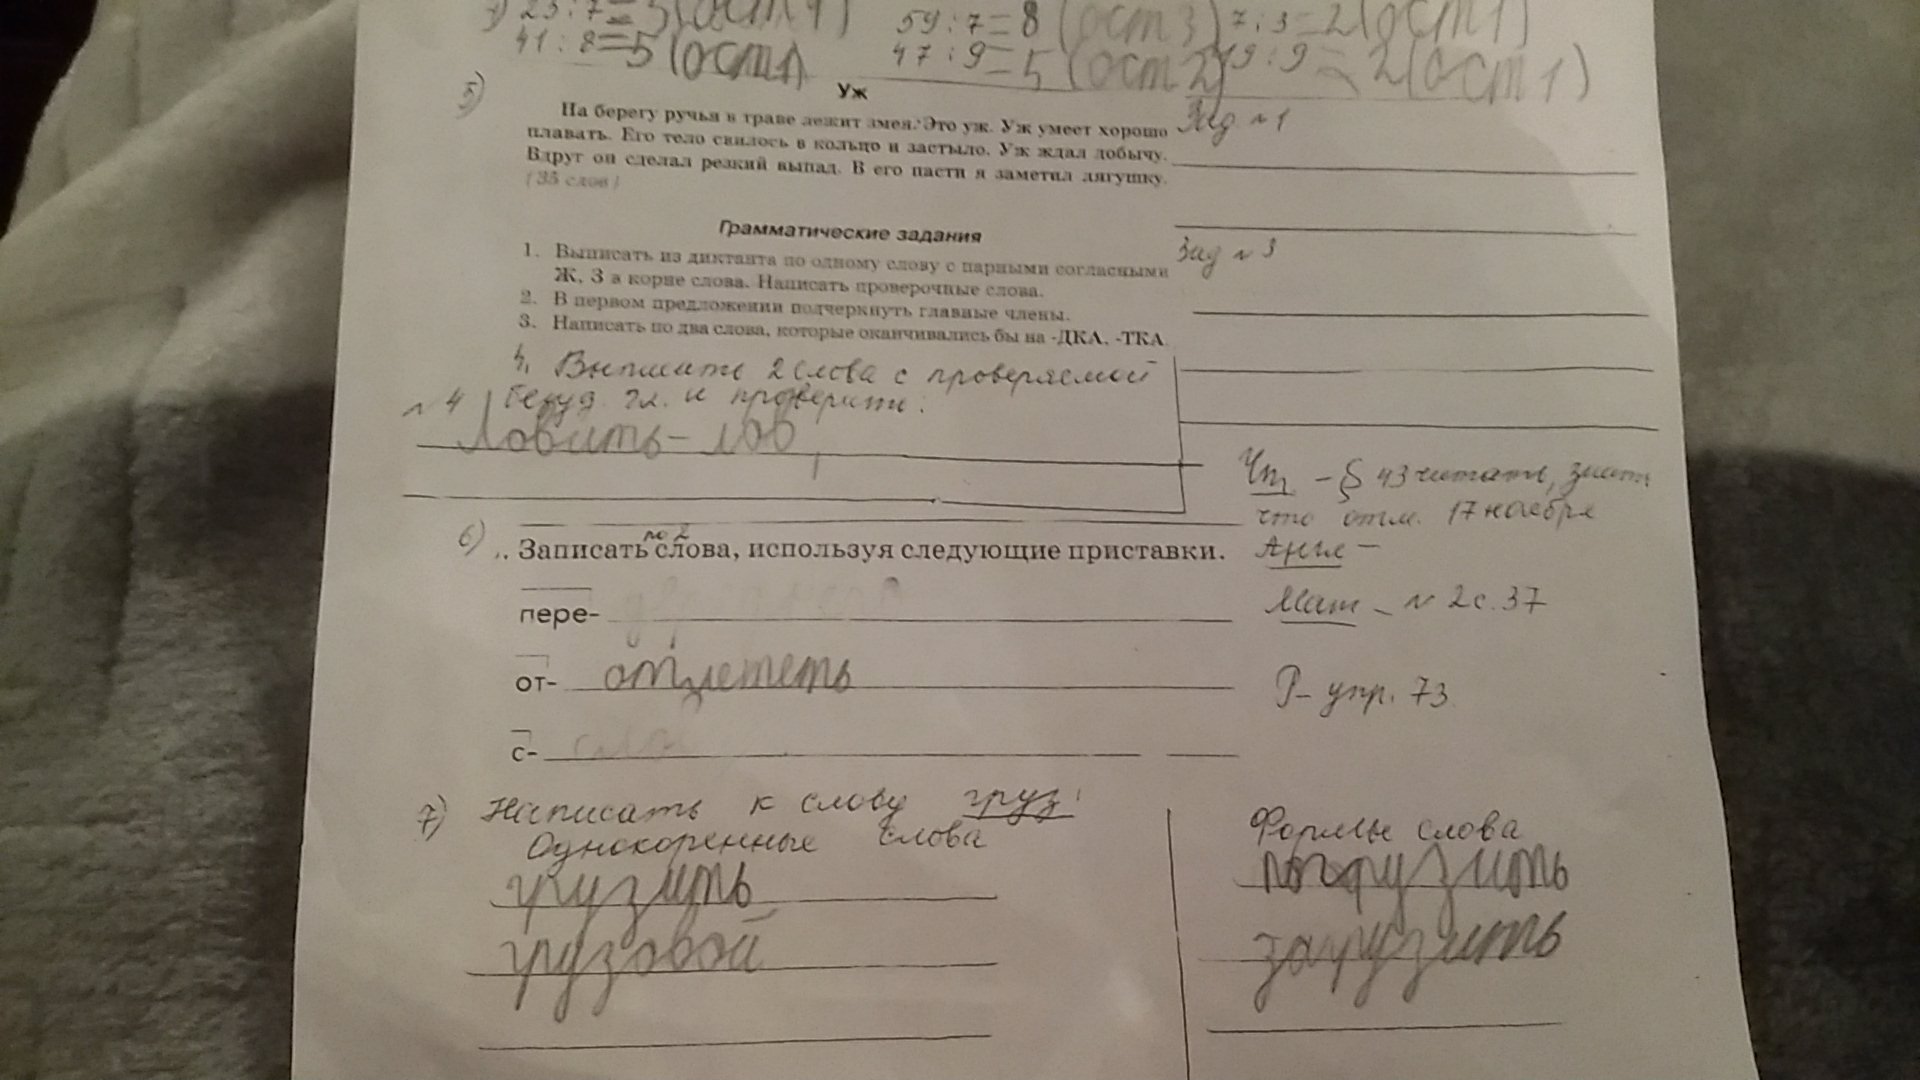 4) 25 : 7 = 3 (ост 4) 59 : 7 = 8 (ост 3) 7 : 3 = 2 (ост 1)
41 : 8 = 5 (ост 1) 47 : 9 = 5 (ост 2) 19 : 9 = 2 (ост 1)
5) Уж
На берегу ручья в траве лежит змея. Это уж. Уж умеет хорошо
плавать. Его тело свилось в кольцо и застыло. Уж ждал добычу.
Вдруг он сделал резкий выпад. В его пасти я заметил лягушку.
(35 слов)
Зад №1
Грамматические задания
1. Выписать из диктанта по одному слову с парными согласными
Ж, З в корне слова. Написать проверочные слова.
2. В первом предложении подчеркнуть главные члены.
3. Написать по два слова, которые оканчивались бы на -ДКА, -ТКА.
Зад №3
4. Выпишите 2 слова с проверяемой
безуд. гл. и проверить:
№ 4
Ловить - лов,
Чт - § 43 читать, знать
что отм. 17 ноября
Англ -
Мат - № 2 с. 37
Р - упр. 73
6) по 2
Записать слова, используя следующие приставки.
пере-
от- отлететь
с-
7) Написать к слову груз:
Однокоренные слова
грузить
грузовой
Формы слова
погрузить
загрузить